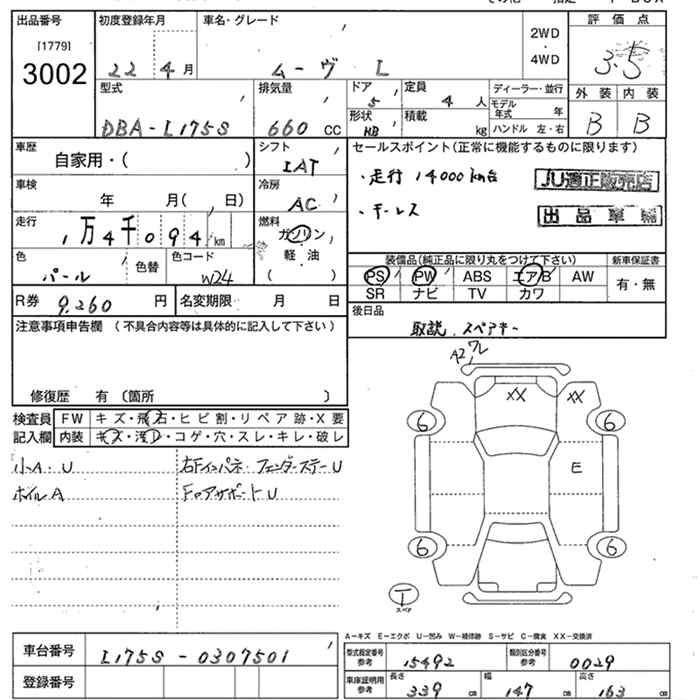 出品番号 初度登録年月 車名・グレード 評価点
[1779]
3002 22 4月 ムーヴ L 2WD・4WD 3.5
型式 排気量 ドア 5 定員 4人 ディーラー・並行 外装 内装
DBA-L175S 660 CC 形状 HB 積載 kg モデル年式 年 ハンドル 左・右 B B
車歴 シフト セールスポイント(正常に機能するものに限ります)
自家用・( ) IAT ・走行 14000km台 JU適正販売店
車検 冷房 ・キーレス 出品車輌
年 月( 、 日) AC
走行 燃料
1万4千094km ガソリン
色 色替 色コード 軽油 装備品(純正品に限り丸をつけて下さい) 新車保証書
パール W24 ( ) PS PW ABS エアB AW 有・無
R券 9,260円 名変期限 月 日 SR ナビ TV カワ
注意事項申告欄 (不具合内容等は具体的に記入して下さい) 後日品
取説、スペアキー
修復歴 有 〔箇所 〕
検査員 FW キズ・飛石・ヒビ割・リペア跡・X要
記入欄 内装 キズ・浸ミ・コゲ・穴・スレ・キレ・破レ
小A・U 右Fインパネ・フェンダーステーU
ホイルA FロアサポートU
A2 ワレ
XX XX
6 6
E
6 6
T
スペア
A-キズ E-エクボ U-凹み W-補修跡 S-サビ C-腐食 XX-交換済
車台番号 L175S-0307501 型式指定番号 参考 15492 類別区分番号 参考 0029
登録番号 車庫証明用 参考 長さ 339cm 幅 147cm 高さ 163cm